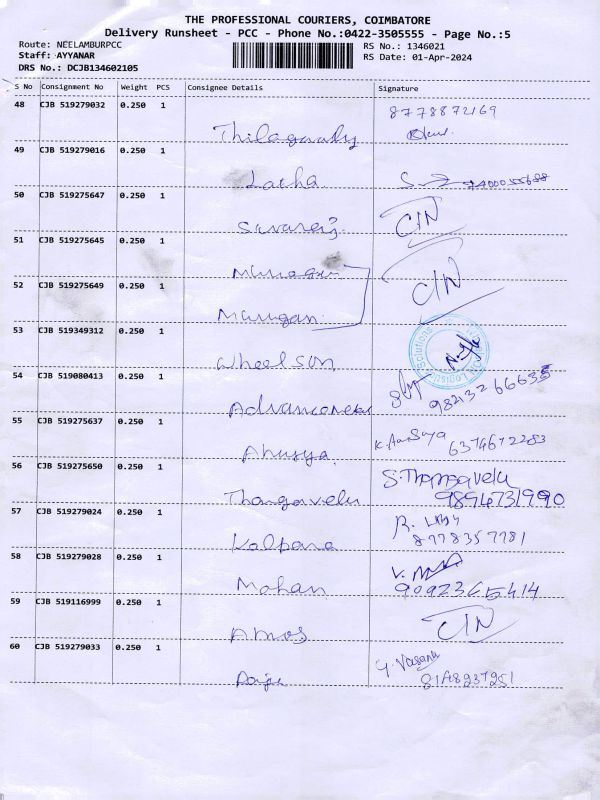 THE PROFESSIONAL COURIERS, COIMBATORE
Delivery Runsheet - PCC - Phone No.:0422-3505555 - Page No.:5
Route: NEELAMBURPCC RS No.: 1346021
Staff: AYYANAR RS Date: 01-Apr-2024
DRS No.: DCJB134602105
S No Consignment No Weight PCS Consignee Details Signature
48 CJB 519279032 0.250 1 8778872169
49 CJB 519279016 0.250 1
Latha
50 CJB 519275647 0.250 1
CIN
51 CJB 519275645 0.250 1
52 CJB 519275649 0.250 1 CIN
Murugan
53 CJB 519349312 0.250 1
Wheelsun
54 CJB 519080413 0.250 1
55 CJB 519275637 0.250 1
6374672283
56 CJB 519275650 0.250 1 S. Thangavelu
Thangavelu 9894731990
57 CJB 519279024 0.250 1
Kalpana 8778357781
58 CJB 519279028 0.250 1
Mohan 9092365414
59 CJB 519116999 0.250 1 CIN
Amos
60 CJB 519279033 0.250 1